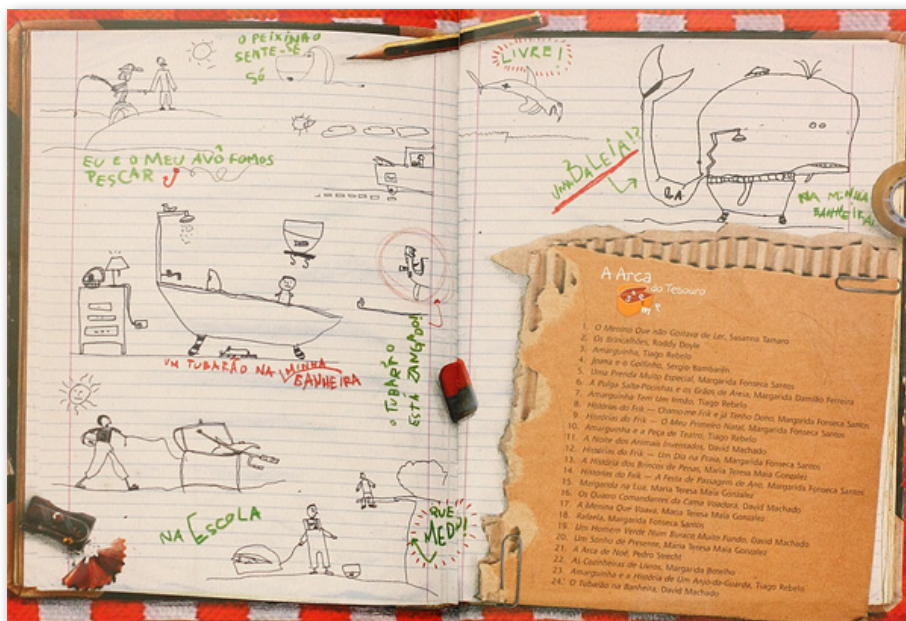 O PEIXINHO
SENTE-SE
SÓ
EU E O MEU AVÔ FOMOS
PESCAR
UM TUBARÃO NA MINHA
BANHEIRA
O TUBARÃO
ESTÁ ZANGADO!
NA ESCOLA
QUE
MEDO!
LIVRE!
UMA BALEIA!?
NA MINHA
BANHEIRA!
A Arca
do Tesouro
1. O Menino Que não Gostava de Ler, Susanna Tamaro
2. Os Brincalhões, Roddy Doyle
3. Amarguinha, Tiago Rebelo
4. Joana e o Golfinho, Sergio Bambarén
5. Uma Prenda Muito Especial, Margarida Fonseca Santos
6. A Pulga Salta-Pocinhas e os Grãos de Areia, Margarida Damião Ferreira
7. Amarguinha Tem Um Irmão, Tiago Rebelo
8. Histórias do Frik — Chamo-me Frik e já Tenho Dono, Margarida Fonseca Santos
9. Histórias do Frik — O Meu Primeiro Natal, Margarida Fonseca Santos
10. Amarguinha e a Peça de Teatro, Tiago Rebelo
11. A Noite dos Animais Inventados, David Machado
12. Histórias do Frik — Um Dia na Praia, Margarida Fonseca Santos
13. A História dos Brincos de Penas, Maria Teresa Maia Gonzalez
14. Histórias do Frik — A Festa de Passagem de Ano, Margarida Fonseca Santos
15. Margarida na Lua, Maria Teresa Maia Gonzalez
16. Os Quatro Comandantes da Cama Voadora, David Machado
17. A Menina Que Voava, Maria Teresa Maia Gonzalez
18. Rafaela, Margarida Fonseca Santos
19. Um Homem Verde Num Buraco Muito Fundo, David Machado
20. Um Sonho de Presente, Maria Teresa Maia Gonzalez
21. A Arca de Noé, Pedro Strecht
22. As Cozinheiras de Livros, Margarida Botelho
23. Amarguinha e a História de Um Anjo-da-Guarda, Tiago Rebelo
24. O Tubarão na Banheira, David Machado